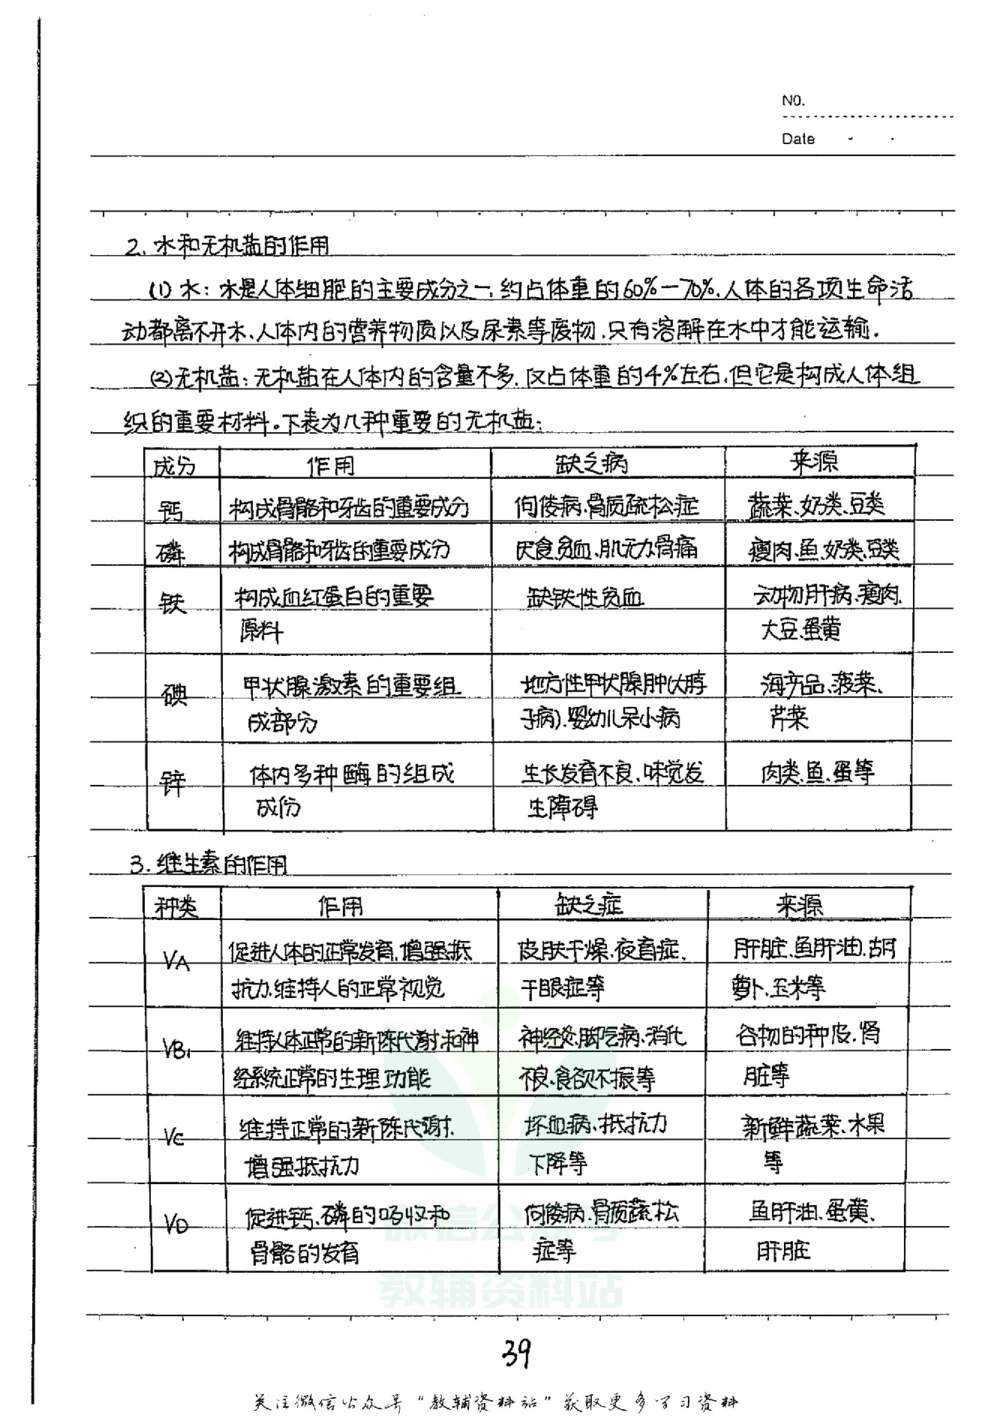 NO.
Date
2. 水和无机盐的作用
(1) 水：水是人体细胞的主要成分之一，约占体重的60%—70%，人体的各项生命活
动都离不开水、人体内的营养物质以及尿素等废物，只有溶解在水中才能运输.
(2)无机盐：无机盐在人体内的含量不多，仅占体重的4%左右，但它是构成人体组
织的重要材料。下表为几种重要的无机盐：
成分 作用 缺乏病 来源
钙 构成骨骼和牙齿的重要成分 佝偻病、骨质疏松症 蔬菜、奶类、豆类
磷 构成骨骼和牙齿的重要成分 厌食、贫血、肌无力、骨痛 瘦肉、鱼、奶类、豆类
铁 构成血红蛋白的重要 缺铁性贫血 动物肝病、瘦肉、
原料 大豆、蛋黄
碘 甲状腺激素的重要组 地方性甲状腺肿(大脖 海产品、菠菜、
成部分 子病)、婴幼儿呆小病 芹菜
锌 体内多种酶的组成 生长发育不良、味觉发 肉类、鱼、蛋等
成份 生障碍
3. 维生素的作用
种类 作用 缺乏症 来源
VA 促进人体的正常发育，增强抵 皮肤干燥、夜盲症、 肝脏、鱼肝油、胡
抗力，维持人的正常视觉 干眼症等 萝卜、玉米等
VB₁ 维持人体正常的新陈代谢和神 神经炎、脚气病、消化 谷物的种皮、肾
经系统正常的生理功能 不良、食欲不振等 脏等
VC 维持正常的新陈代谢， 坏血病、抵抗力 新鲜蔬菜、水果
增强抵抗力 下降等 等
VD 促进钙、磷的吸收和 佝偻病、骨质疏松 鱼肝油、蛋黄、
骨骼的发育 症等 肝脏
微信公众号
教辅资料站
39
关注微信公众号“教辅资料站”获取更多学习资料